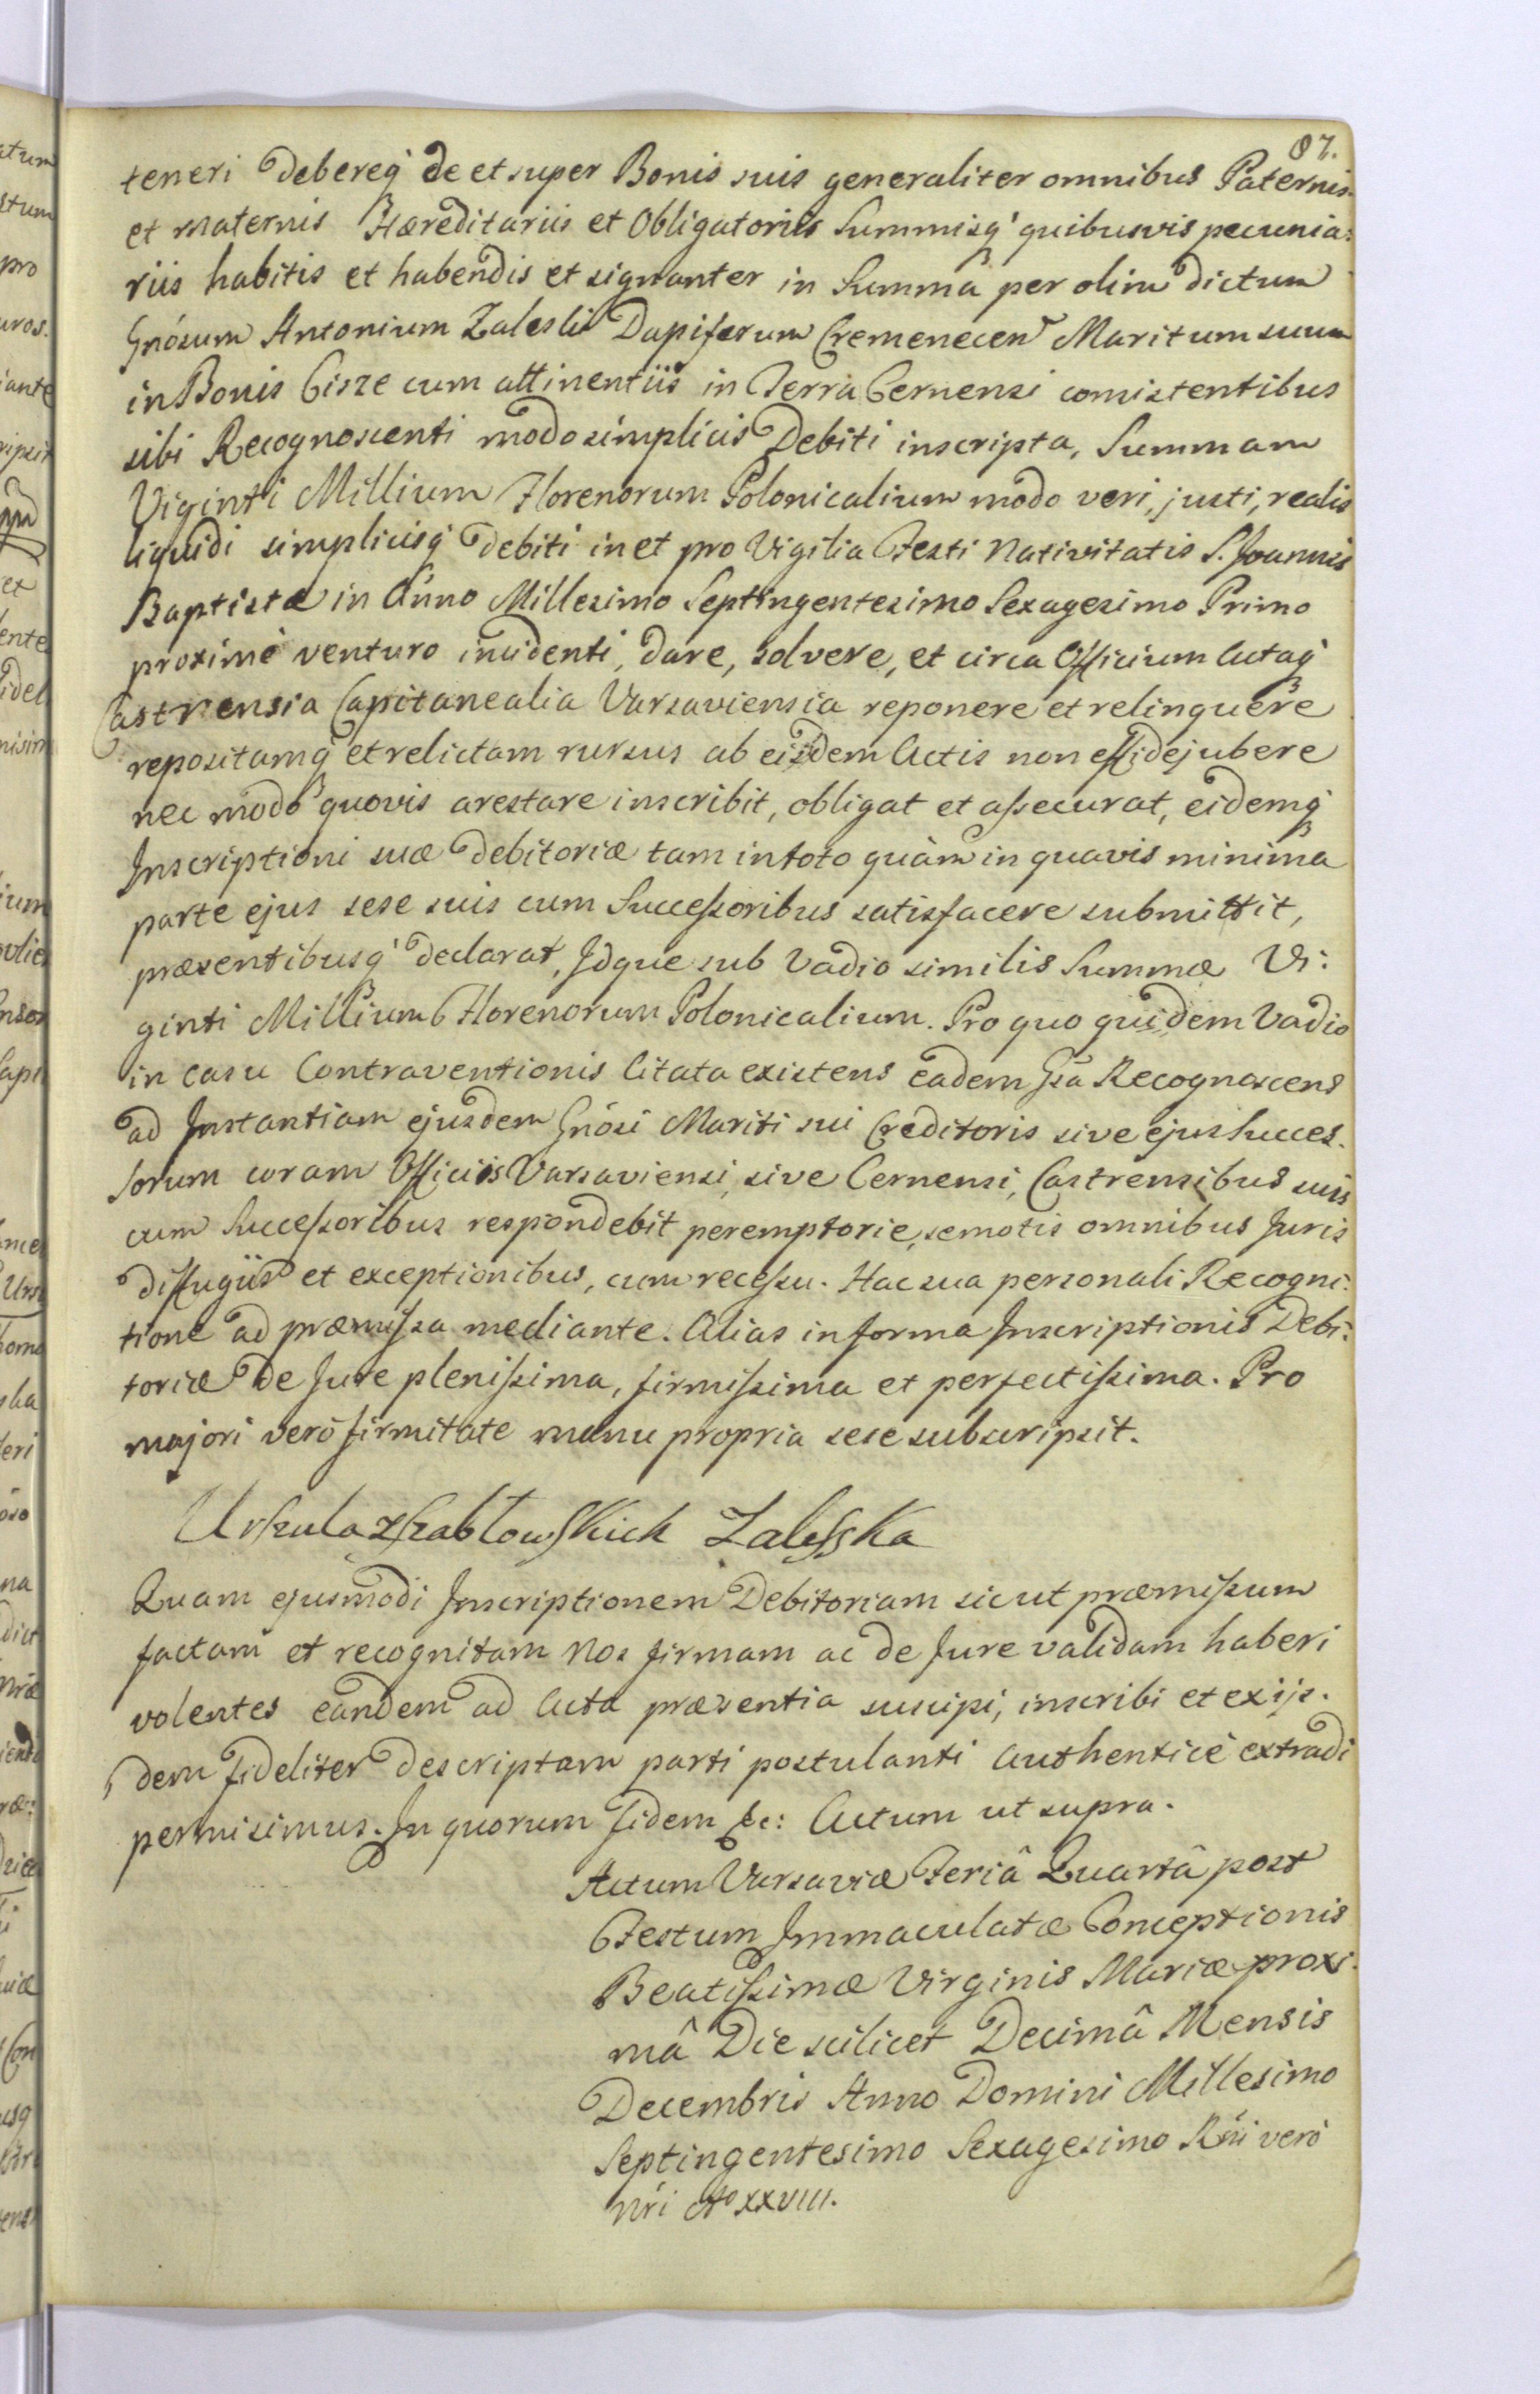 87.
teneri debereq́ de et super Bonis suis generaliter omnibus Paternis
et Maternis Hæreditariis et Obligatoriis Summisq́ quibusvis pecunia:
riis habitis et habendis et signanter in Summa per olim dictum
Gnósum Antonium Zaleski Dapiferum Cremenecen Maritum suum
in Bonis Cisze cum attinentiis in Terra Cernensi consistentibus
sibi Recognoscenti modo simplicis Debiti inscripta, Summam
Viginti Millium Florenorum Polonicalium modo veri, justi, realis
liquidi simplicisq́ debiti in et pro Vigilia Festi Nativitatis S. Joannis
Baptistæ in Anno Millesimo Septingentesimo Sexagesimo Primo
proximè venturo incidenti, dare, solvere, et circa Officium Actaq́
Castrensia Capitanealia Varsaviensia reponere et relinquere
repositamq́ et relictam rursus ab eisdem Actis non effidejubere
nec modo quovis arestare inscribit, obligat et assecurat, eidemq́
Inscriptioni suæ debitoriæ tam in toto quàm in quavis minima
parte ejus sese suis cum Successoribus satisfacere submittit,
præsentibusq́ declarat, Idque sub Vadio similis Summæ Vi:
ginti Millium Florenorum Polonicalium. Pro quo quidem Vadio
in casu Contraventionis Citata existens eadem Gsa Recognoscens
ad Instantiam ejusdem Gnósi Mariti sui Creditoris sive ejus Succes.
sorum coram Officiis Varsaviensi, sive Cernensi, Castrensibus suis
cum Successoribus respondebit peremptorie, semotis omnibus Juris
diffugiis et exceptionibus, cum recessu. Hac sua personali Recogni:
tione ad præmissa mediante. Alias in forma Inscriptionis Debi:
toriæ de Jure plenissima, firmissima et perfectissima. Pro
majori verò firmitate manu propria sese subscripsit.
Urszula z Szabłowskich Zalesska
Quam ejusmodi Inscriptionem Debitoriam sicut præmissum
factam et recognitam Nos firmam ac de Jure validam haberi
volentes eandem ad Acta præsentia suscipi, inscribi et exijs.
dem fideliter descriptam parti postulanti Authenticè extradi
permisimus. In quorum fidem &c: Actum ut supra.
Actum Varsaviæ Feriâ Quartâ post
Festum Immaculatæ Conceptionis
Beatissimæ Virginis Mariæ proxi:
mâ Die scilicet Decimâ Mensis
Decembris Anno Domini Millesimo
Septingentesimo Sexagesimo Rñi verò
Nri Ao XXVIII.